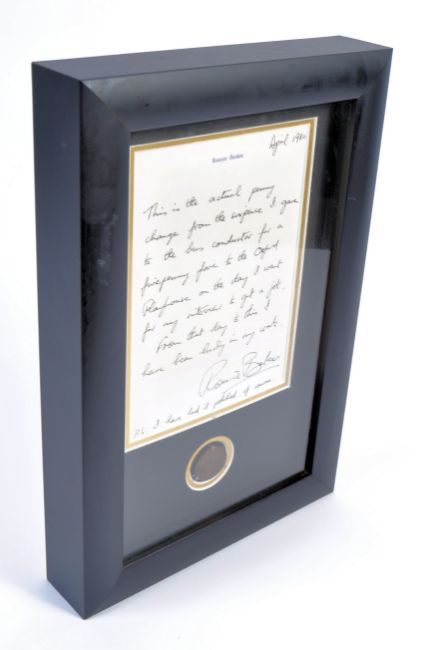 April 1980
Ronnie Barker
This is the actual penny
change from the sixpence I gave
to the bus conductor for a
fivepenny fare to the Oxford
Playhouse on the day I went
for my interview to get a job.
From that day to this I
have been lucky in my work.
Ronnie Barker
P.S. I have had it polished, of course.